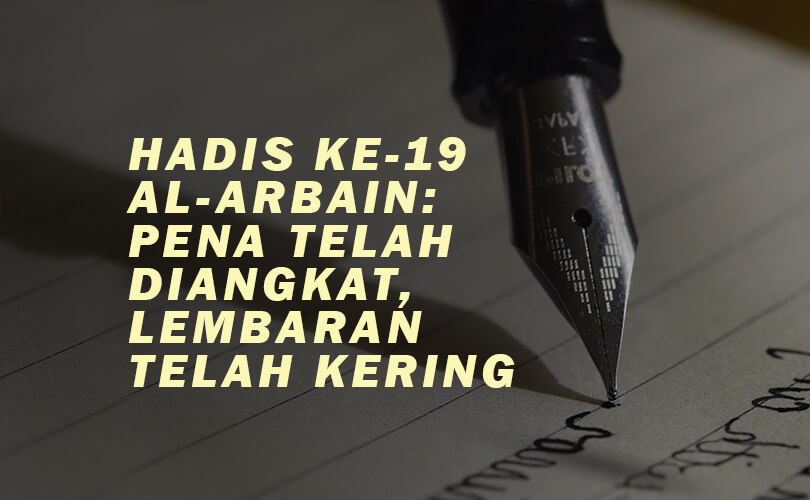 HADIS KE-19
AL-ARBAIN:
PENA TELAH
DIANGKAT,
LEMBARAN
TELAH KERING
<F>